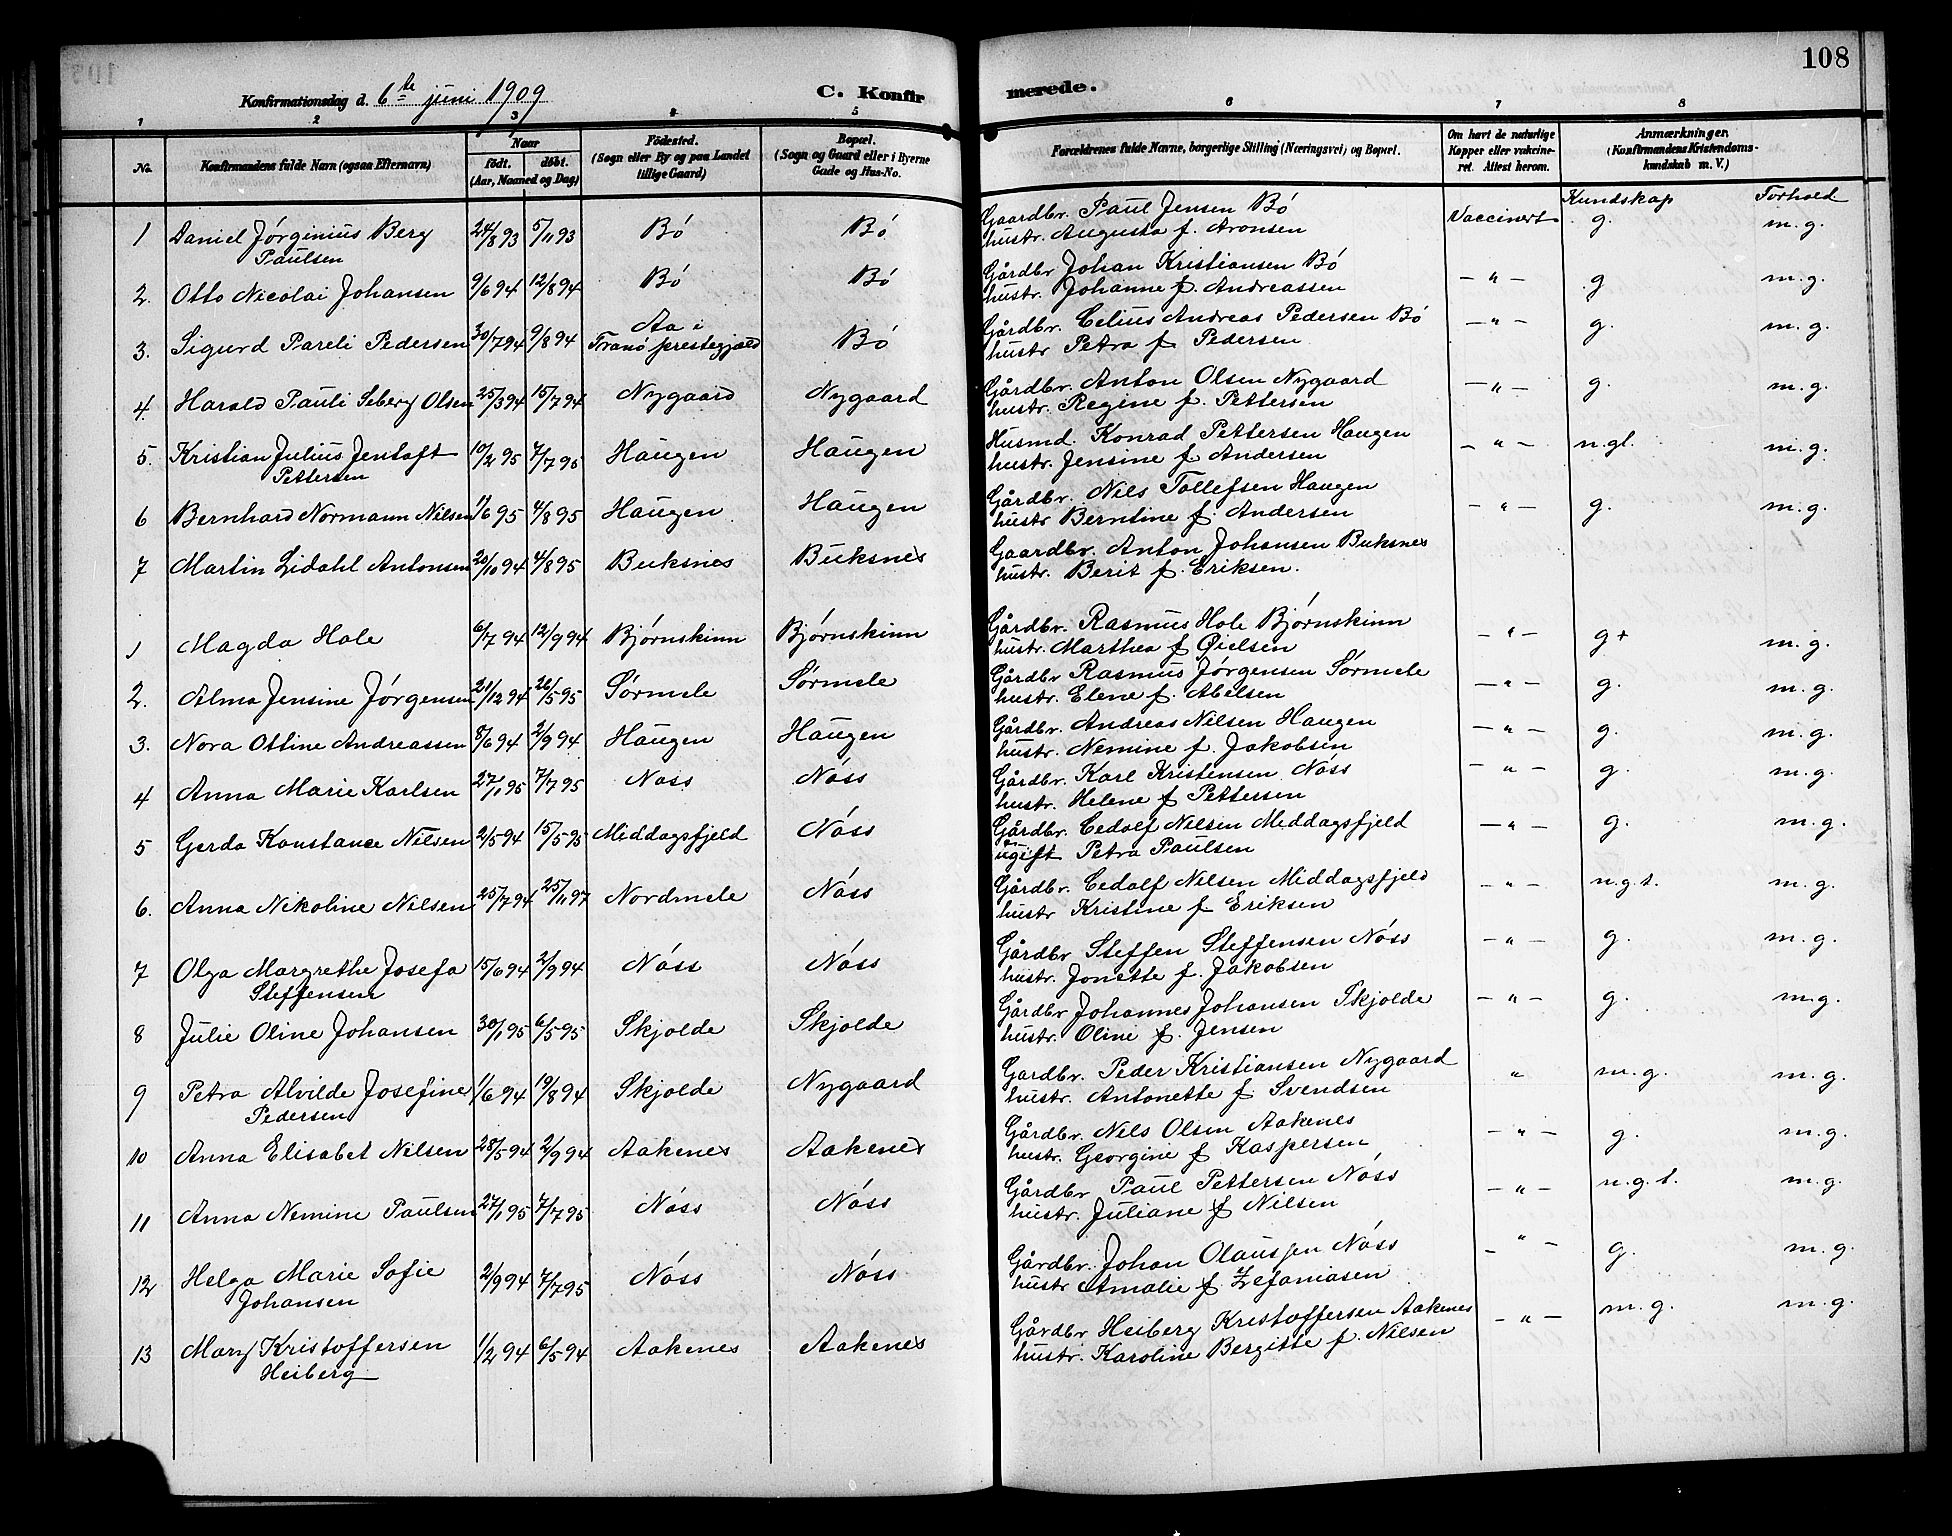 108
Konfirmationsdag d. 6te juni 1909
C. Konfirmerede.
1 2 3 4 5 6 7 8
No. Konfirmandens fulde Navn (ogsaa Efternavn) Naar født. døbt. (Aar, Maaned og Dag) Fødested. (Sogn eller By og paa Landet tillige Gaard) Bopæl. (Sogn og Gaard eller i Byerne Gade og Hus-No. Forældrenes fulde Navne, borgerlige Stilling (Næringsvei) og Bopæl. Om havt de naturlige Kopper eller vaccineret. Attest herom. Anmærkninger. (Konfirmandens Kristendomskundskab m. V.)
Kundskap Forhold
1 Daniel Jørginius Berg Paulsen 24/8 93 5/11 93 Bø Bø Gaardbr. Paul Jensen Bø Vaccinert g. m.g.
hustr. Augusta f. Aronsen
2. Otto Nicolai Johansen 9/6 94 12/8 94 Bø Bø Gårdbr Johan Kristiansen Bø - " - g m.g.
hustr. Johanne f. Andreassen
3. Sigurd Pareli Pedersen 30/7 94 9/8 94 Aa i Tranø prestegjæld Bø Gårdbr. Celius Andreas Pedersen Bø - " - g. m.g.
hustr Petra f Pedersen
4. Harald Pauli Seberg Olsen 25/3 94 15/7 94 Nygaard Nygaard Gårdbr. Anton Olsen Nygaard - " - g. m.g.
hustr. Regine f. Pettersen
5. Kristian Julius Jentoft Pettersen 10/2 95 7/7 95 Haugen Haugen Husmd. Konrad Pettersen Haugen - " - n.gl. m.g.
hustr. Jensine f. Andersen
6 Bernhard Normann Nilsen 1/6 95 4/8 95 Haugen Haugen Gårdbr. Nils Tollefsen Haugen - " - g. m.g.
hustr Berntine f. Andersen
7 Martin Lidahl Antonsen 20/10 94 4/8 95 Buksnes Buksnes Gaardbr. Anton Johansen Buksnes
hustr. Berit f. Eriksen.
1 Magda Hole 6/7 94 12/9 94 Bjørnskinn Bjørnskinn Gårdbr. Rasmus Hole Bjørnskinn - " - g+ m.g.
hustr. Marthea f Gielsen
2. Alma Jensine Jørgensen 21/12 94 26/5 95 Sørmele Sørmele Gårdbr Rasmus Jørgensen Sørmele - " - g. m.g.
hustr. Elene f. Abelsen
3. Nora Ottine Andreassen 8/6 94 2/9 94 Haugen Haugen Gårdbr. Andreas Nilsen Haugen - " - g. m.g.
hustr. Nemine f. Jakobsen
4 Anna Marie Karlsen 27/1 95 7/7 95 Nøss Nøss Gårdbr. Karl Kristensen Nøss - " - g. m.g.
hustr. Helene f Pettersen
5 Gerda Konstance Nilsen 2/5 94 15/5 95 Middagsfjeld Nøss Gårdbr. Cedolf Nilsen Middagsfjeld - " - g. m.g.
ugift Petra Paulsen
6. Anna Nikoline Nilsen 25/7 94 25/11 97 Nordmele Nøss Gårdbr. Cedolf Nilsen Middagsfjeld - " - n.g.t. m.g.
hustr Kristine f. Eriksen
7 Olga Margrethe Josefa Steffensen 15/6 94 2/9 94 Nøss Nøss Gårdbr. Steffen Steffensen Nøss - " - g. m.g.
hustr. Jonette f. Jakobsen
8 Julie Oline Johansen 30/1 95 6/5 95 Skjolde Skjolde Gårdbr Johannes Johansen Skjolde - " - g. m.g.
hustr. Oline f. Jensen
9 Petra Alvilde Josefine Pedersen 1/6 94 19/8 94 Skjolde Nygaard Gardbr. Peder Kristiansen Nygaard " m.g. m.g.
hustr. Antonette f Svendsen
10 Anna Elisabet Nilsen 28/5 94 2/9 94 Aakenes Aakenes Gårdbr. Nils Olsen Aakenes - " - g. m.g.
hustr. Georgine f Kaspersen
11 Anna Nemine Paulsen 27/1 95 7/7 95 Nøss Nøss Gårdbr Paul Pettersen Nøss - " - n.g.t. m.g.
hustr. Juliane f Nilsen
12 Helga Marie Sofie Johansen 2/9 94 7/7 95 Nøss Nøss Gårdbr. Johan Olaussen Nøss - " - g. m.g.
hustr Amalie f. Zefaniasen
13 Mary Kristoffersen Heiberg 1/2 94 6/5 94 Aakenes Aakenes Gårdbr Heiberg Kristoffersen Aakenes - " - m.g. m.g.
hustr. Karoline Bergitte f. Nilsen